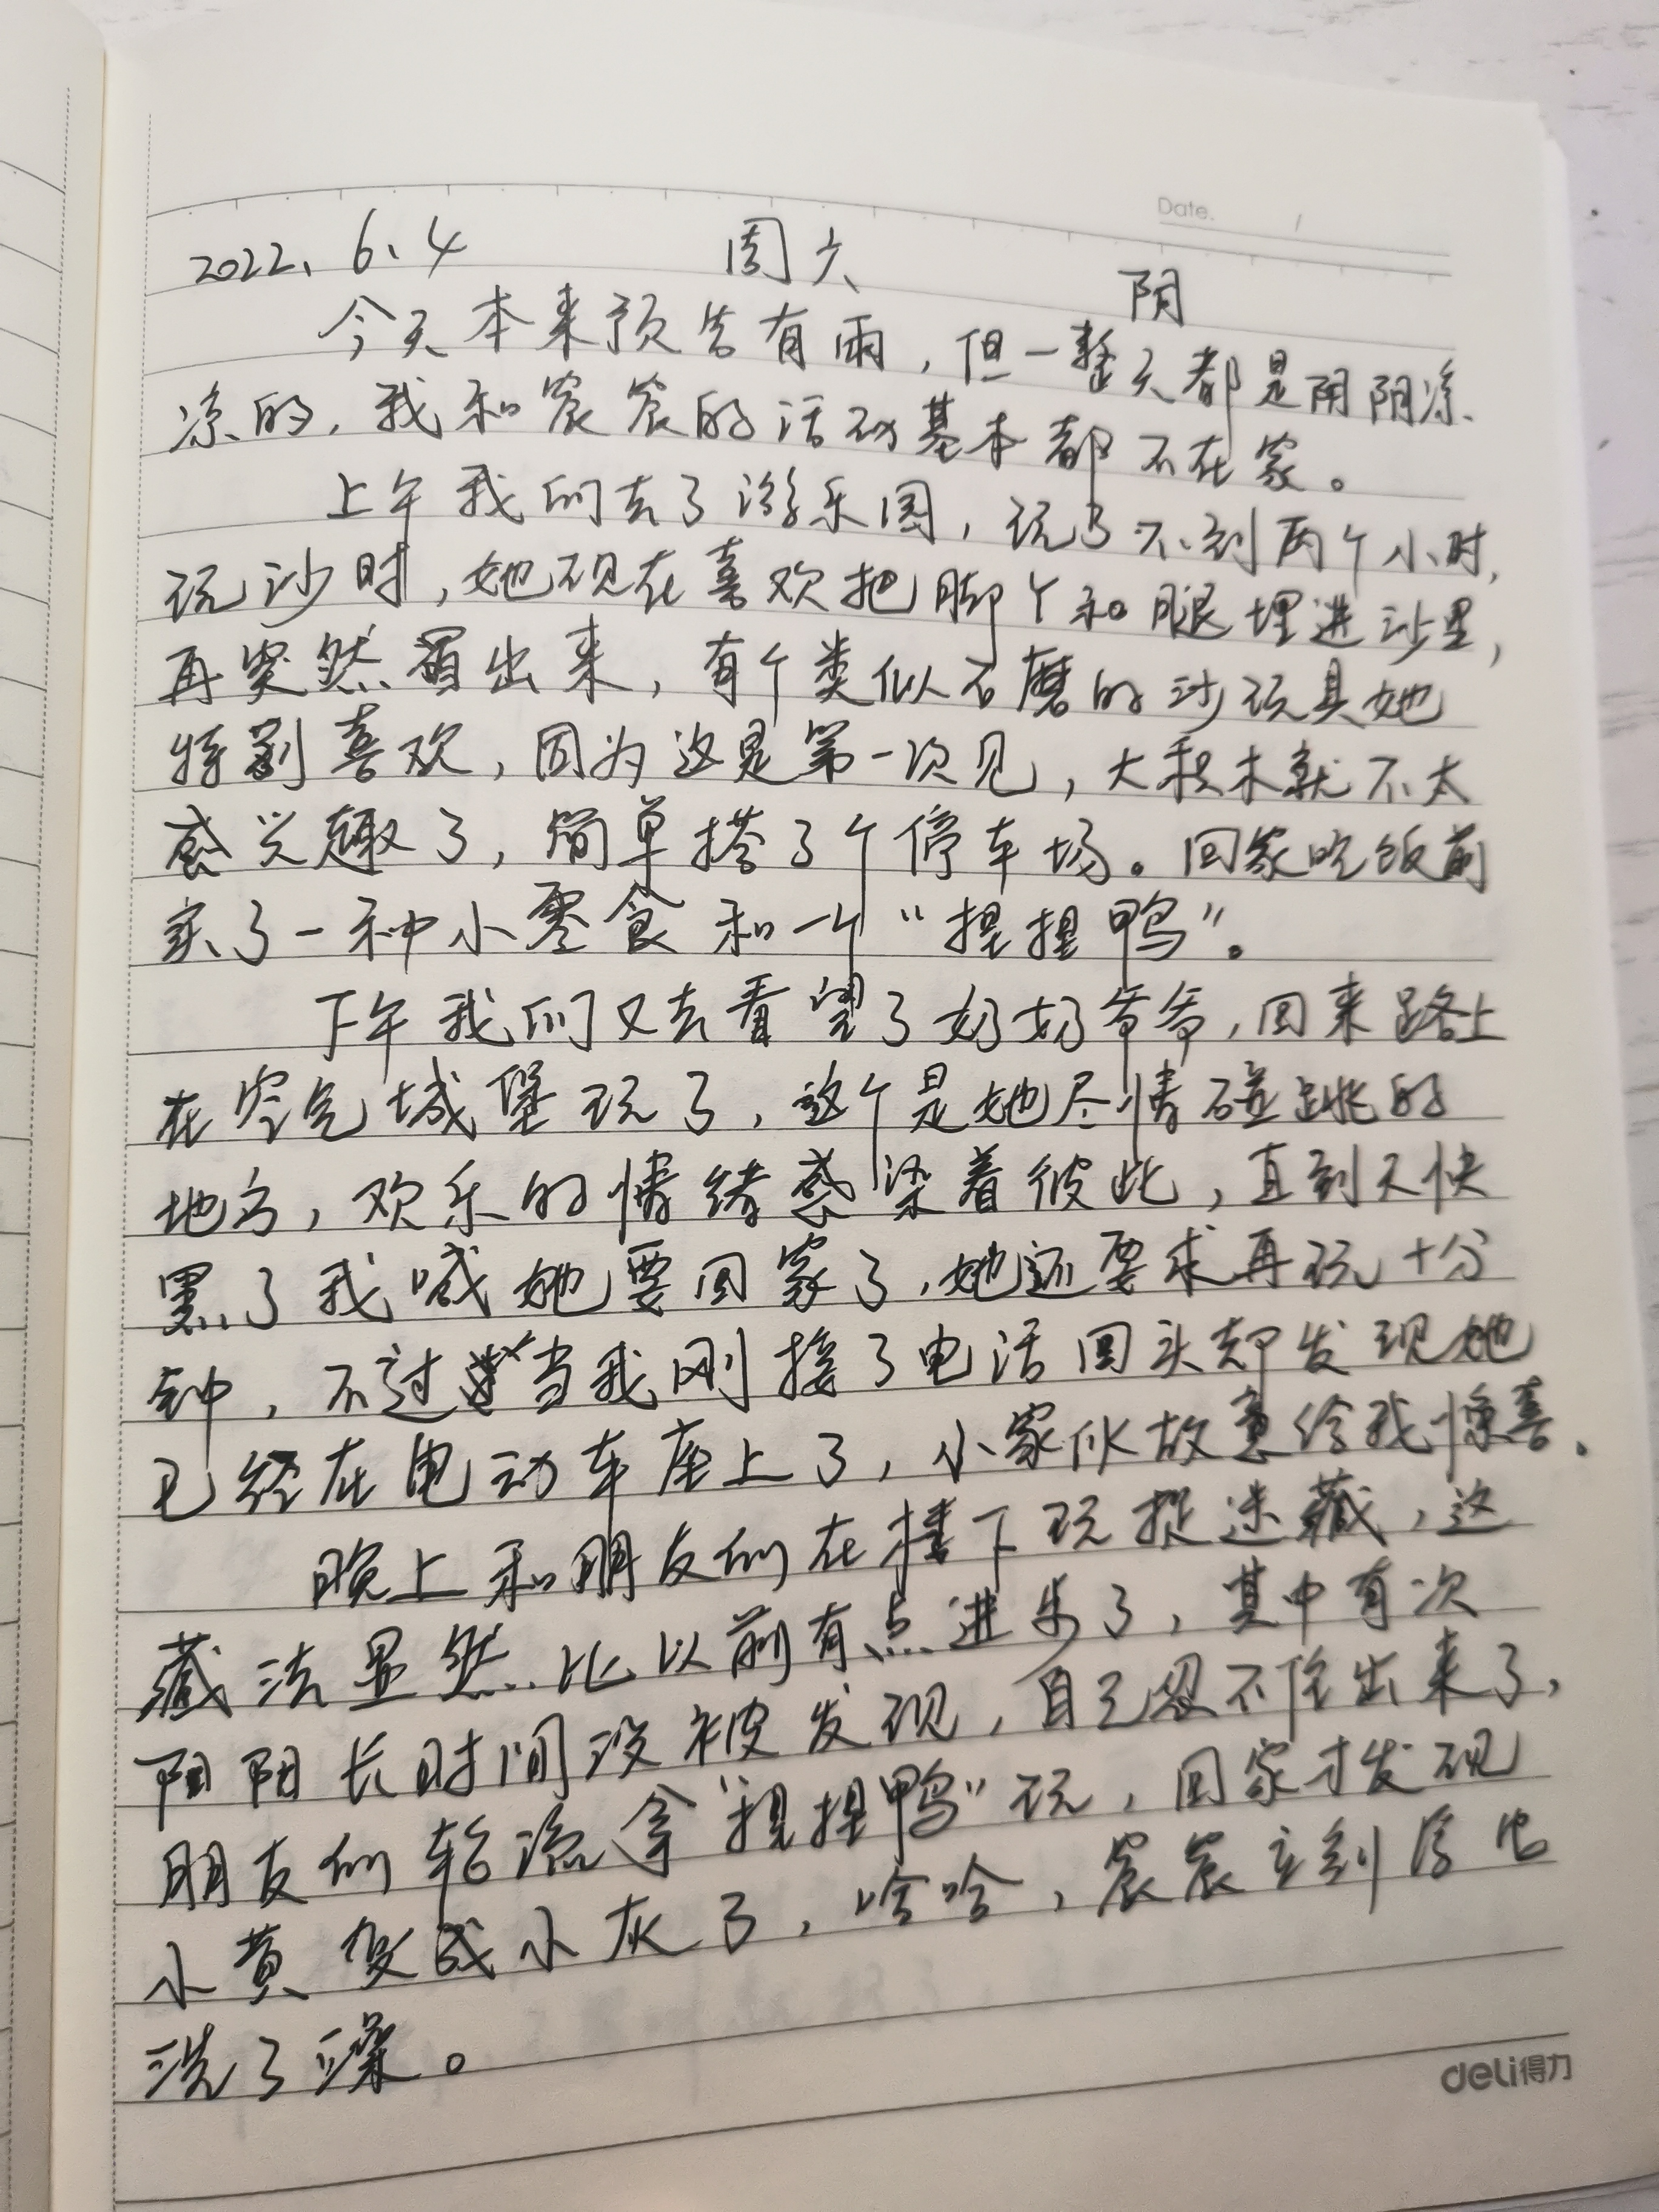 Date.
2022、6、4 周六 阴
今天本来预告有雨，但一整天都是阴阴凉
凉的，我和宸宸的活动基本都不在家。
上午我们去了游乐园，玩了不到两个小时，
玩沙时，她现在喜欢把脚丫和腿埋进沙里，
再突然冒出来，有个类似石磨的沙玩具她
特别喜欢，因为这是第一次见，大积木就不太
感兴趣了，简单搭了个停车场。回家吃饭前
买了一种小零食和一个“捏捏鸭”。
下午我们又去看望了奶奶爷爷，回来路上
在空气城堡玩了，这个是她尽情碰跳的
地方，欢乐的情绪感染着彼此，直到天快
黑了我喊她要回家了，她还要求再玩十分
钟，不过当我刚接了电话回头却发现她
已经在电动车座上了，小家伙故意给我惊喜。
晚上和朋友们在楼下玩捉迷藏，这
藏法显然比以前有点进步了，其中有次
阳阳长时间没被发现，自己忍不住出来了，
朋友们轮流拿“捏捏鸭”玩，回家才发现
小黄变成小灰了，哈哈，宸宸立刻给它
洗了澡。
deli得力